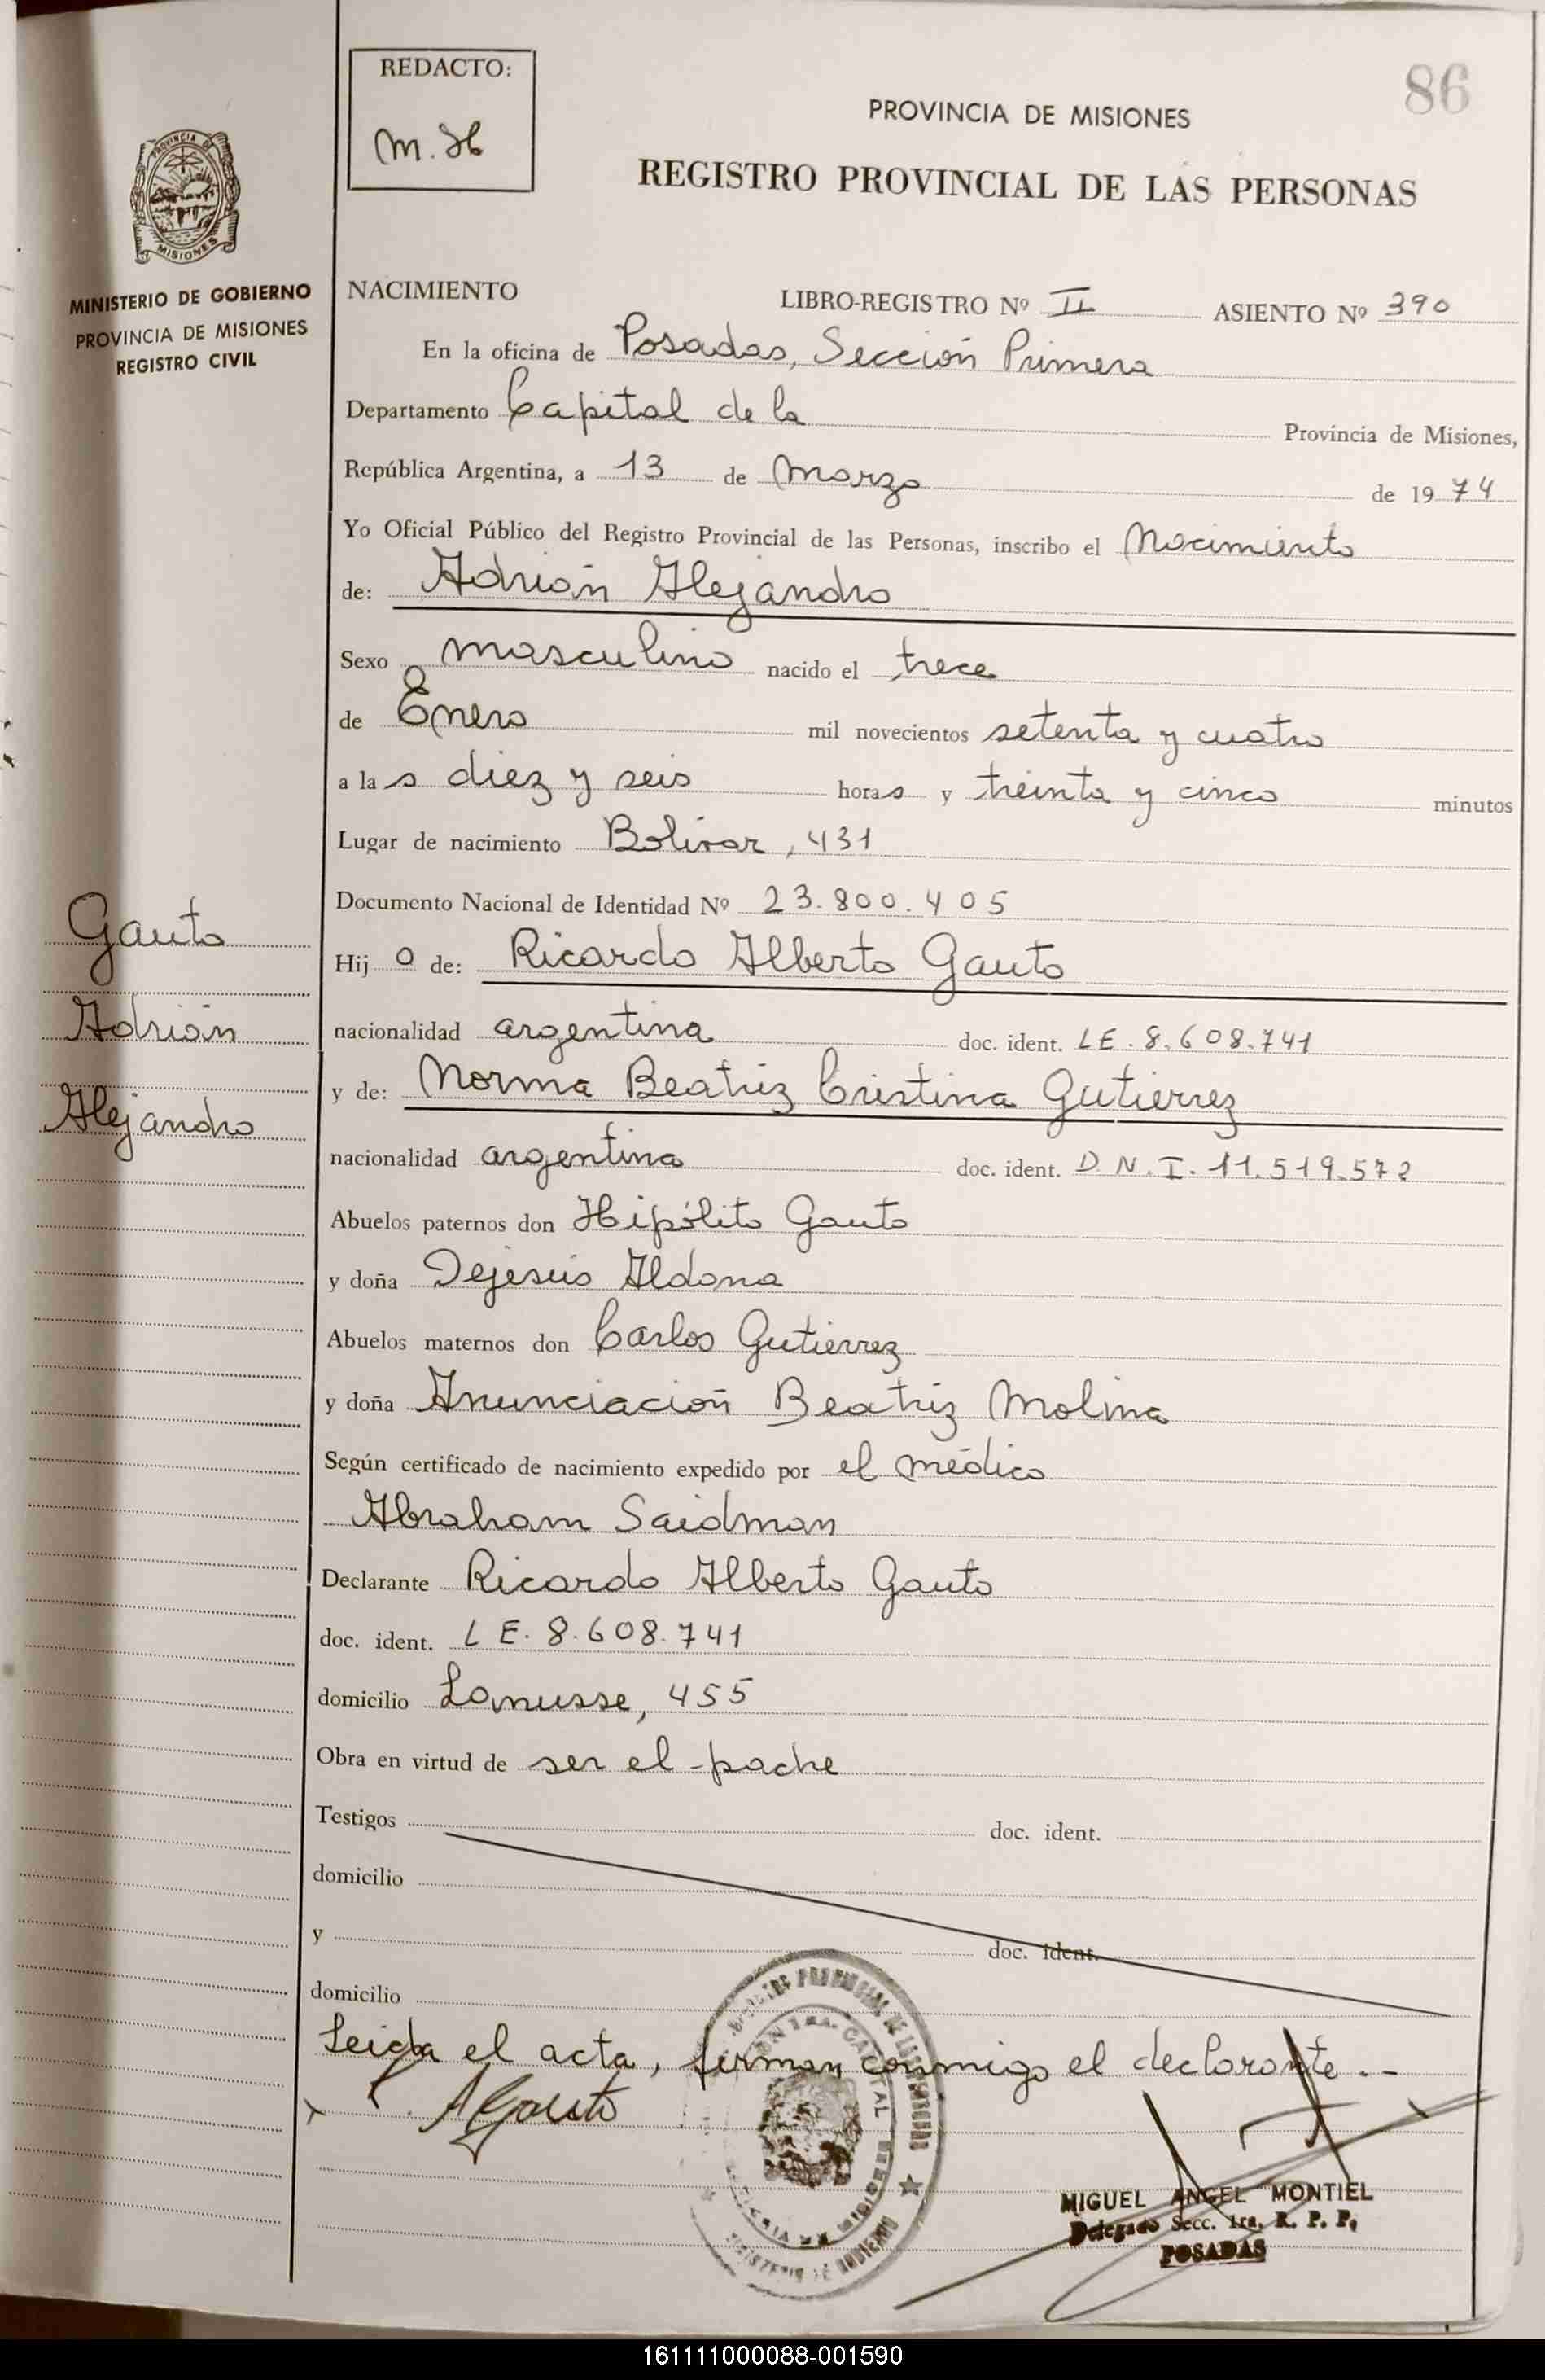 REDACTO:
M. H
86
PROVINCIA DE MISIONES
REGISTRO PROVINCIAL DE LAS PERSONAS
PROVINCIA DE
MISIONES
MINISTERIO DE GOBIERNO
PROVINCIA DE MISIONES
REGISTRO CIVIL
NACIMIENTO LIBRO-REGISTRO Nº II ASIENTO Nº 390
En la oficina de Posadas, Sección Primera
Departamento Capital de la Provincia de Misiones,
República Argentina, a 13 de Marzo de 1974
Yo Oficial Público del Registro Provincial de las Personas, inscribo el Nacimiento
de: Adrián Alejandro
Sexo masculino nacido el trece
de Enero mil novecientos setenta y cuatro
a las diez y seis horas y treinta y cinco minutos
Lugar de nacimiento Bolívar, 431
Documento Nacional de Identidad Nº 23.800.405
Gauto
Hijo de: Ricardo Alberto Gauto
Adrián
nacionalidad argentina doc. ident. LE. 8.608.741
y de: Norma Beatriz Cristina Gutiérrez
Alejandro
nacionalidad argentina doc. ident. D.N.I. 11.519.572
Abuelos paternos don Hipólito Gauto
y doña Dejesús Aldona
Abuelos maternos don Carlos Gutiérrez
y doña Anunciación Beatriz Molina
Según certificado de nacimiento expedido por el médico
Abraham Saidman
Declarante Ricardo Alberto Gauto
doc. ident. LE. 8.608.741
domicilio Lanusse, 455
Obra en virtud de ser el padre
Testigos doc. ident.
domicilio
y doc. ident.
domicilio
Leida el acta, firman conmigo el declarante..
R. A Gauto
MIGUEL ANGEL MONTIEL
Delegado Secc. 1ra. R. P. P.
POSADAS
161111000088-001590